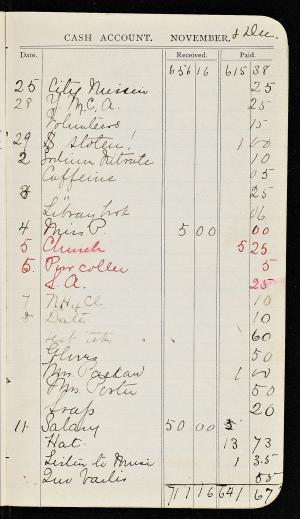 & Dec.
CASH ACCOUNT. NOVEMBER.
Date. Received. Paid.
656 16 615 38
25 City Mission 25
28 Y.M.C.A. 25
Volunteers 15
29 $ stolen! 1 00
2 Sodium Nitrate 10
Caffeine 05
3 " 25
Library book 06
4 Miss P. 5 00 00
5 Church 5 25
5. Poor coller 5
S.A. 25
7 NH4Cl 10
8 Dates 10
60
Gloves 50
Mrs. 1 00
Mrs. Porter 50
Soap 20
11. Salary 50 00
Hat. 13 73
Listen to Music 1 35
Quo Vadis 55
711 16 641 67